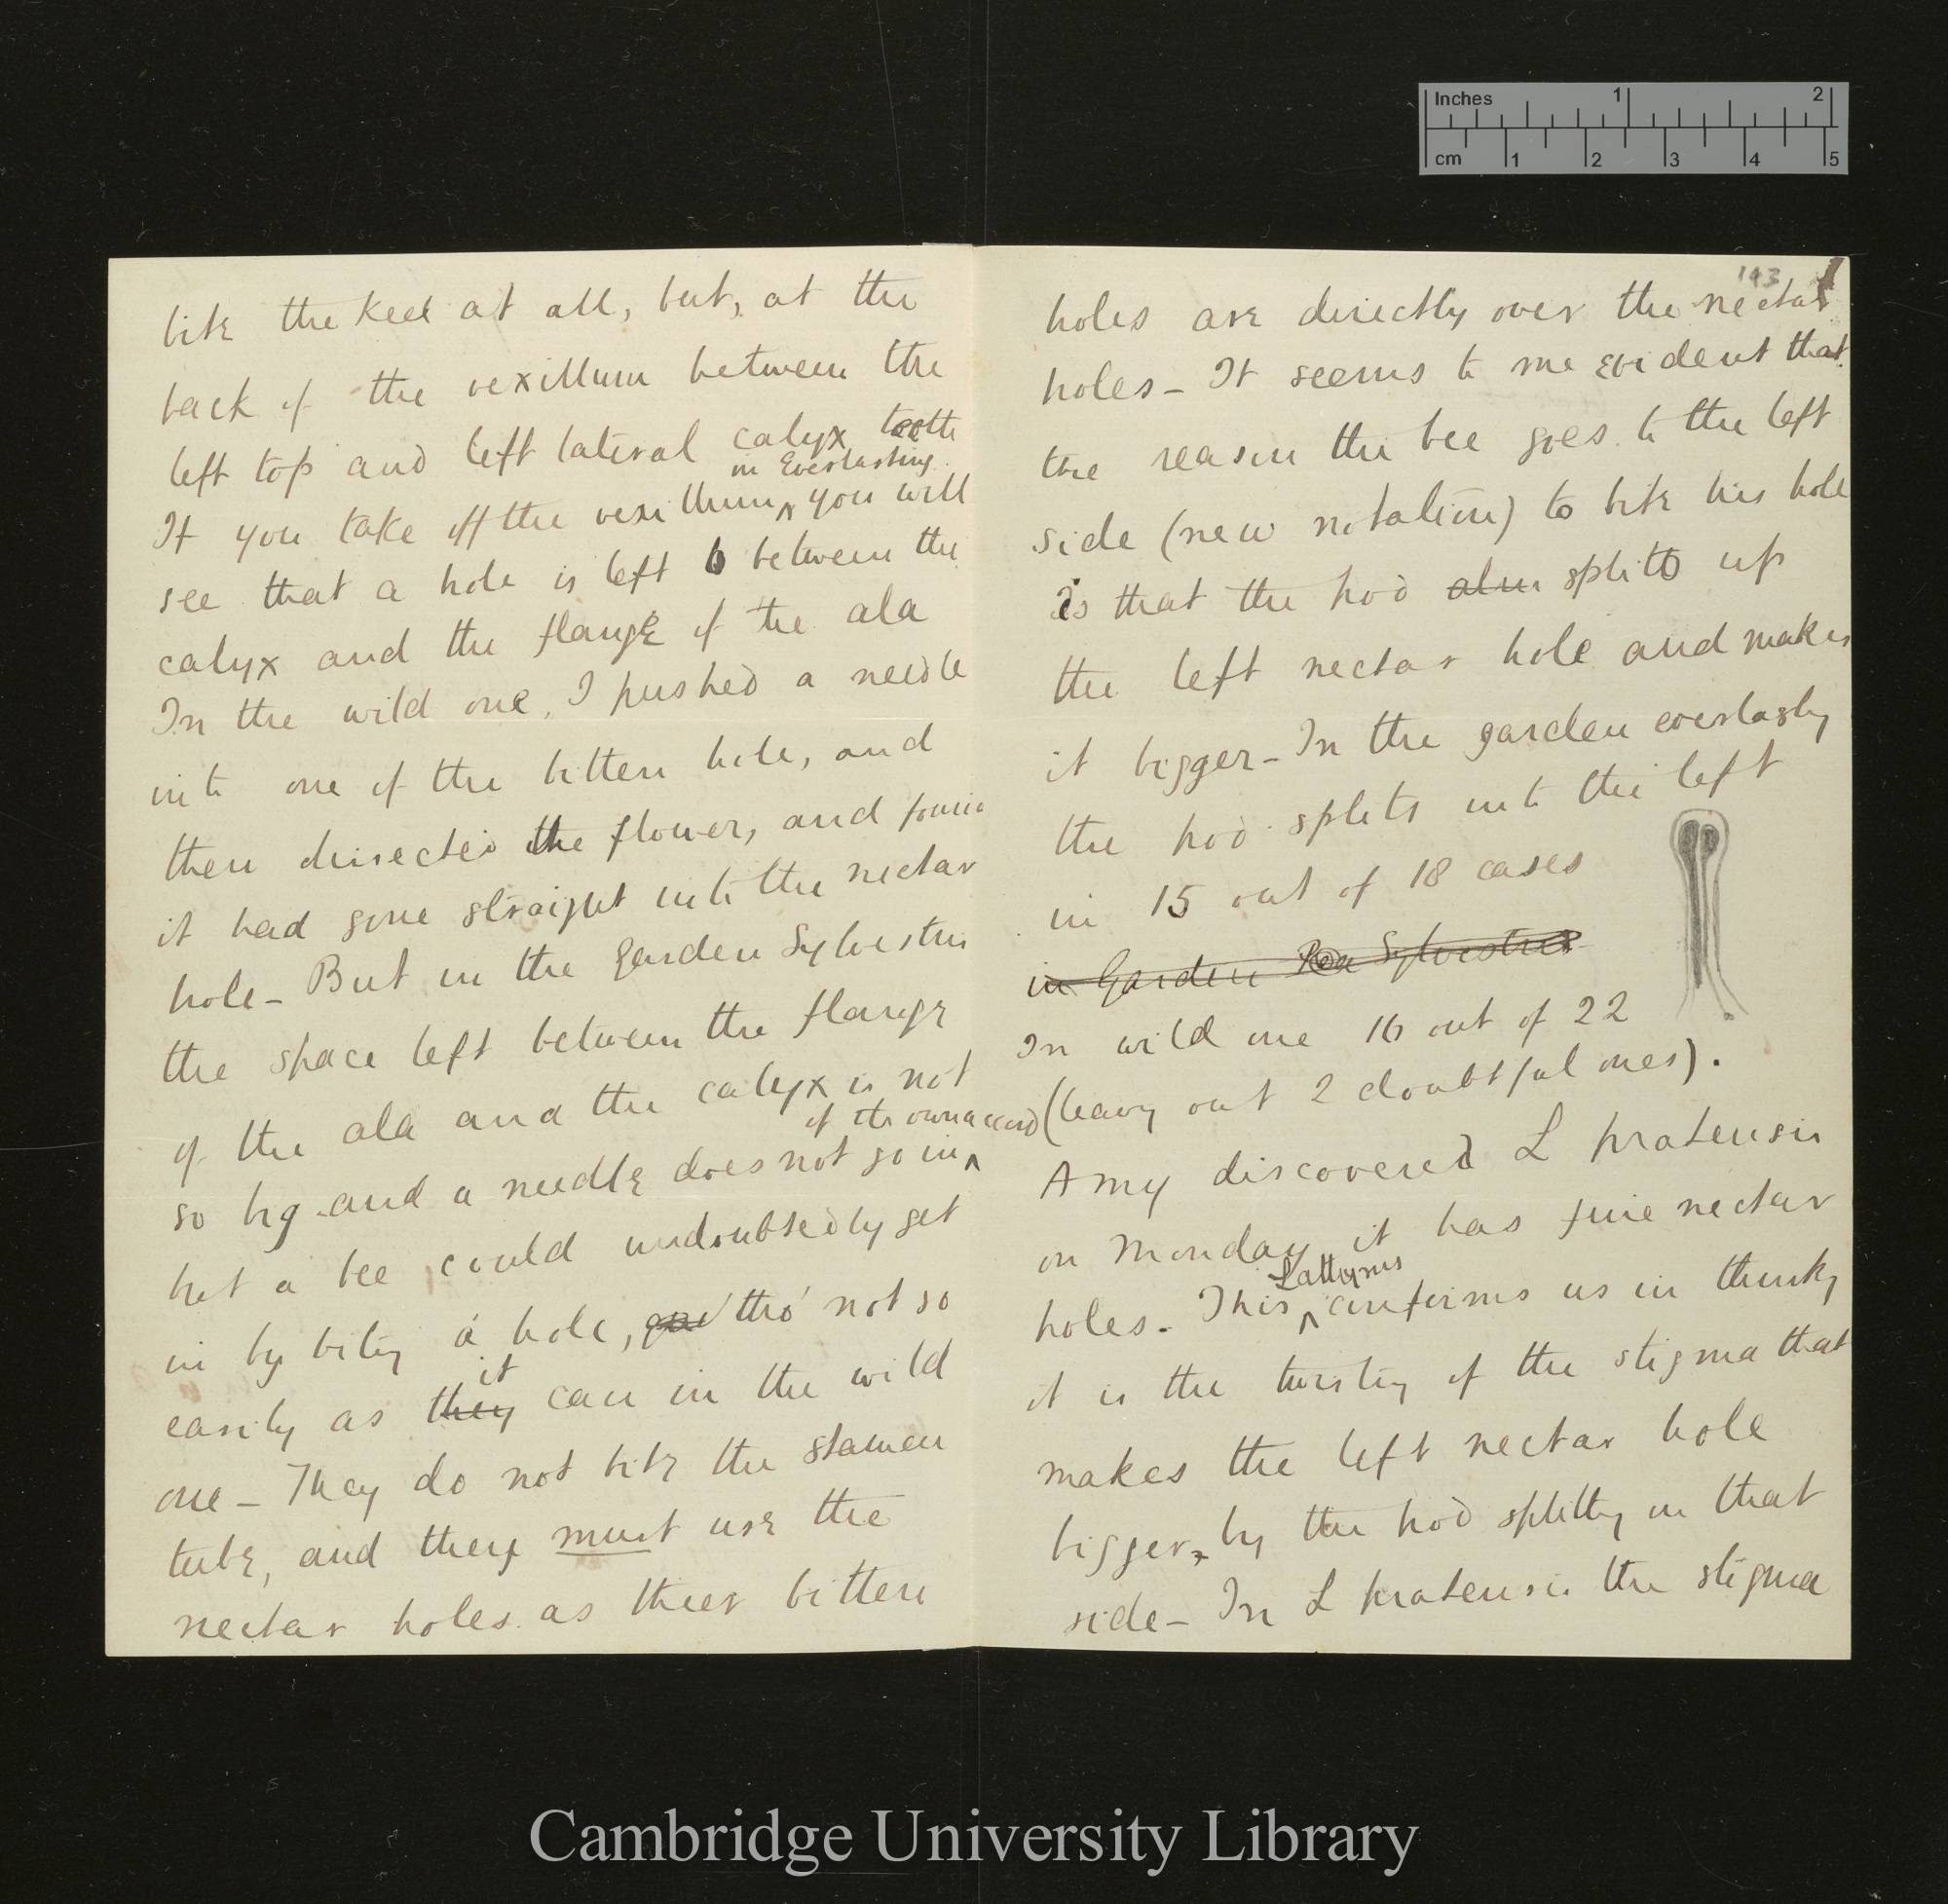 bite the keel at all, but, at the
back of the vexillum between the
left top and left lateral calyx teeth
in Everlasting
If you take off the vexillum ^ you will
see that a hole is left between the
calyx and the flange of the ala
In the wild one, I pushed a needle
into one of the bitten hole, and
then dissected the flower, and found
it had gone straight into the nectar
hole - But in the garden Sylvestris
the space left between the flange
of the ala and the calyx is not
of its own accord
so big and a needle does not go in ^
but a bee could undoubtedly get
in by biting a hole, tho' not so
it
easily as they can in the wild
one - They do not bite the stamen
tube, and they must use the
nectar holes as their bitten
193
holes are directly over the nectar
holes - It seems to me evident that
the reason the bee goes to the left
side (new notation) to bite his hole
is that the hod splitts up
the left nectar hole and makes
it bigger - In the garden everlasting
the hod splits into the left
in 15 out of 18 cases
in Garden Pea Sylvestris
In wild one 16 out of 22
(leaving out 2 doubtful ones).
Amy discovered L pratensis
on Monday it has fine nectar
Lathyrus
holes. This ^ confirms us in thinking
it is the twisting of the stigma that
makes the left nectar hole
bigger, by the hod splitting in that
side - In L pratensis the stigma
Inches 1 2
cm 1 2 3 4 5
Cambridge University Library